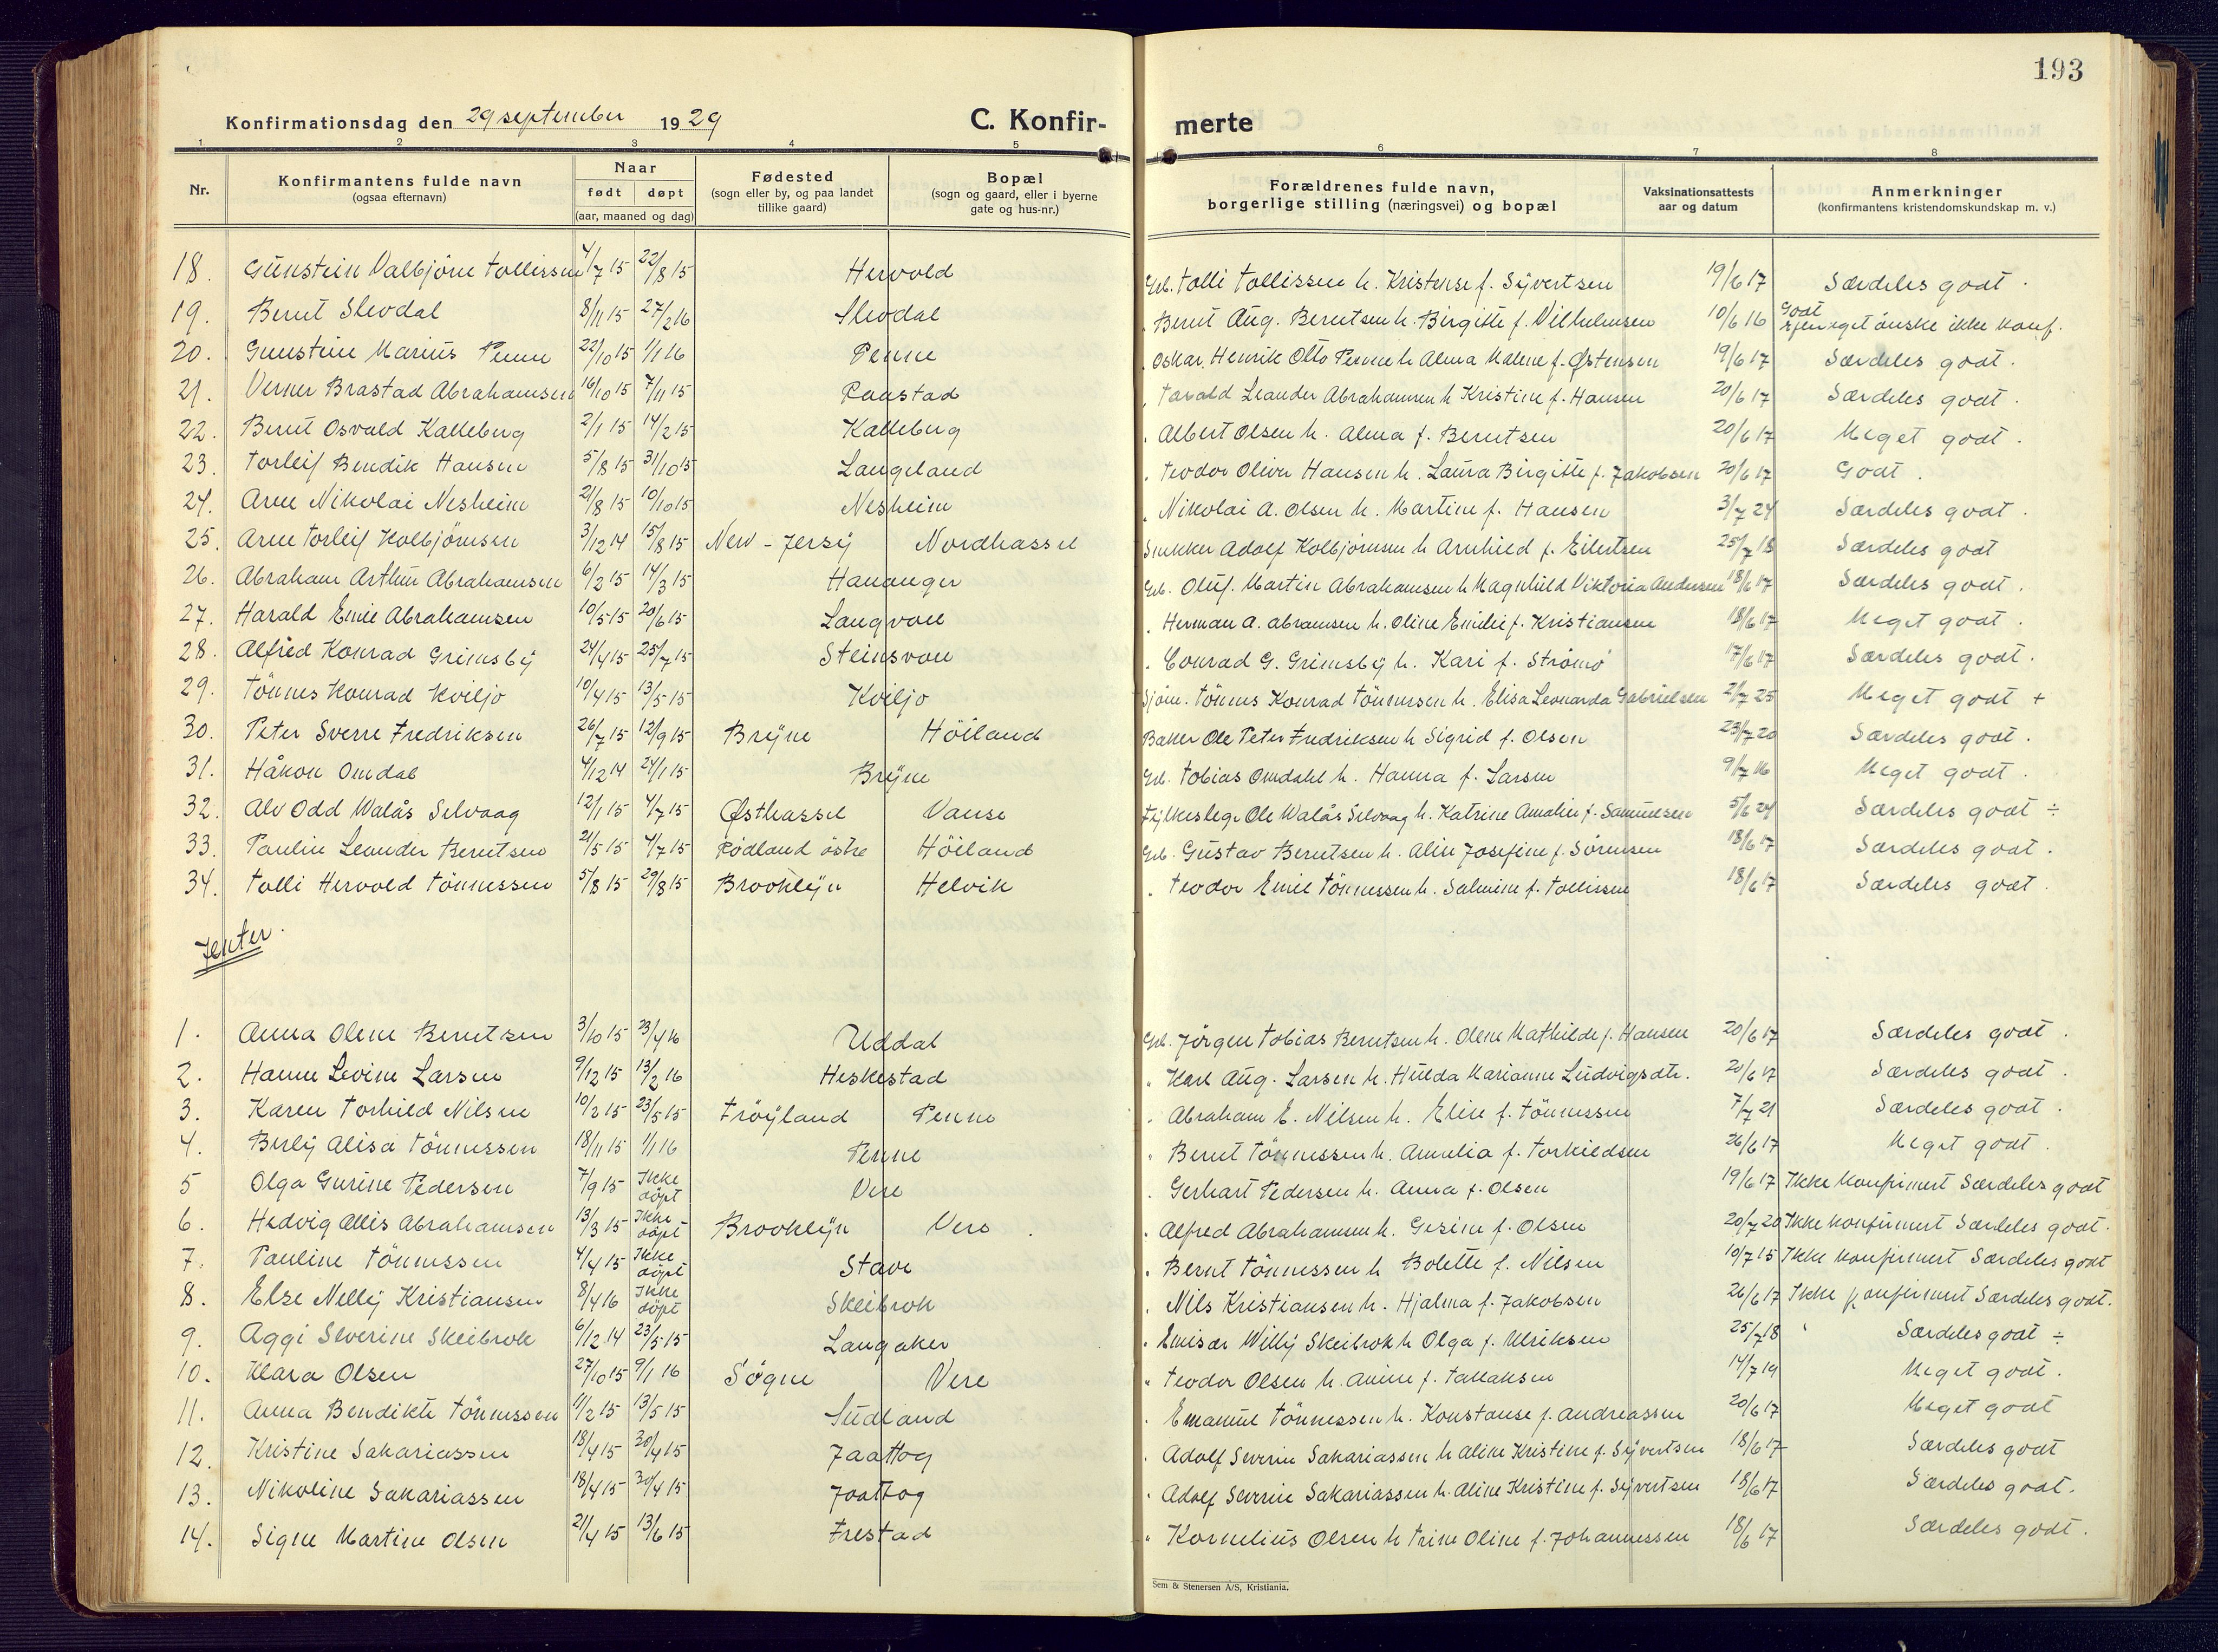 193
Konfirmationsdag den 29 september 1929 C. Konfir- merte
1 2 3 4 5 6 7 8
Nr. Konfirmantens fulde navn (ogsaa efternavn) Naar født døpt (aar, maaned og dag) Fødested (sogn eller by, og paa landet tillike gaard) Bopæl (sogn og gaard, eller i byerne gate og hus-nr.) Forældrenes fulde navn, borgerlige stilling (næringsvei) og bopæl Vaksinationsattests aar og datum Anmerkninger (konfirmantens kristendomskundskap m. v.)
18. Gunstein Valbjörn Tollissen 4/7 15 22/8 15 Hervold Grb. Tolli Tollissen h. Kristense f. Syvertsen 19/6 17 Særdeles godt.
19. Bernt Slevdal 8/11 15 27/2 16 Slevdal Bernt Aug. Berntsen h. Birgitte f. Vilhelmsen 10/6 16 Godt Efter eget önske ikke konf.
20. Gunstein Marius Penne 22/10 15 1/1 16 Penne Oskar Henrik Otto Penne h Alma Malene f. Østensen 19/6 17 Særdeles godt.
21. Verner Brastad Abrahamsen 16/10 15 7/11 15 Raastad Tarald Leander Abrahamsen h Kristine f. Hansen 20/6 17 Særdeles godt.
22. Bernt Osvald Kalleberg 2/1 15 14/2 15 Kalleberg Albert Olsen h. Alma f. Berntsen 20/6 17 Meget godt.
23. Torleif Bendik Hansen 5/8 15 31/10 15 Langeland Teodor Oliver Hansen h. Laura Birgitte f. Jakobsen 20/6 17 Godt.
24. Arne Nikolai Nesheim 21/8 15 10/10 15 Nesheim Nikolai A. Olsen h. Martine f. Hansen 3/7 24 Særdeles godt.
25. Arne Torleif Kolbjörnsen 3/12 14 15/8 15 New-Jersy Nordhassel Snekker Adolf Kolbjörnsen h Arnhild f. Eilertsen 25/7 18 Særdeles godt
26. Abraham Arthur Abrahamsen 6/2 15 14/3 15 Hananger Grb. Oluf Martin Abrahamsen h Magnhild Viktoria Andersen 18/6 17 Særdeles godt.
27. Harald Emil Abrahamsen 10/5 15 20/6 15 Langvon Herman A. Abramsen h. Oline Emilie f. Kristiansen 18/6 17 Meget godt.
28. Alfred Konrad Grimsby 24/4 15 25/7 15 Steinsvon Conrad G. Grimsby h. Kari f. Strömö 17/6 17 Særdeles godt.
29. Tönnes Konrad Kviljo 10/4 15 13/5 15 Kviljo Sjöm. Tönnes Konrad Tönnessen h. Elisa Leonarda Gabrielsen 2/7 25 Meget godt +
30. Peter Sverre Fredriksen 26/7 15 12/9 15 Bryne Höiland Baker Ole Peter Fredriksen h Sigrid f. Olsen 23/7 20 Særdeles godt.
31. Håkon Omdal 4/12 14 24/1 15 Bryne Grb. Tobias Omdahl h. Hanna f. Larsen 9/7 16 Meget godt.
32. Alv Odd Walås Selvaag 12/1 15 4/7 15 Østhassel Vanse Fylkeslege Ole Walås Selvaag h. Katrine Amalie f. Samuelsen 5/6 24 Særdeles godt ÷
33. Paulin Leander Berntsen 21/5 15 4/7 15 Rødland östre Höiland Grb. Gustav Berntsen h. Aline Josefine f. Sørensen 18/6 17 Særdeles godt.
34. Tolli Hervold Tönnessen 5/8 15 29/8 15 Brooklyn Helvik Teodor Emil Tönnessen h. Salmine f. Tollissen 18/6 17 Særdeles godt.
Jenter.
1. Anna Olene Berntsen 3/10 15 23/4 16 Uddal Grb. Jörgen Tobias Berntsen h. Olene Mathilde f. Hansen 20/6 17 Særdeles godt.
2. Hanne Levine Larsen 9/12 15 13/2 16 Heskestad " Karl Aug. Larsen h. Hulda Marianne Ludvigsdtr. 20/6 17 Særdeles godt.
3. Karen Torhild Nilsen 10/2 15 23/5 15 Fröyland Penne Abraham E. Nilsen h. Elise f. Tönnessen 7/7 21 Særdeles godt.
4. Berly Alisa Tönnessen 18/11 15 1/1 16 Penne " Bernt Tönnessen h. Amalia f. Torkildsen 26/6 17 Meget godt.
5 Olga Gurine Pedersen 7/9 15 Ikke döpt Vere Gerhart Pedersen h. Anna f. Olsen 19/6 17 Ikke konfirmert Særdeles godt
6. Hedvig Ellis Abrahamsen 13/3 15 Ikke döpt Brooklyn Vere Alfred Abrahamsen h. Gesine f. Olsen 20/7 20 Ikke konfirmert Særdeles godt.
7. Pauline Tönnessen 4/4 15 Ikke döpt Stave Bernt Tönnessen h Bolette f. Nilsen 10/7 15 Ikke konfirmert Særdeles godt
8. Else Nelly Kristiansen 8/4 16 Ikke döpt Skeibrok Nils Kristiansen h. Hjalma f. Jakobsen 26/6 17 Ikke konfirmert Særdeles godt.
9. Aggi Severine Skeibrok 6/12 14 23/5 15 Langaker Emisær Willy Skeibrok h Olga f. Ulriksen 25/7 18 Særdeles godt ÷
10. Klara Olsen 27/10 15 9/1 16 Sögne Vere " Teodor Olsen h. Anine f. Tallaksen 14/7 19 Meget godt.
11. Anna Bendikte Tönnessen 11/2 15 13/5 15 Sudland Emanuel Tönnessen h. Konstanse f. Andreassen 20/6 17 Meget godt
12. Kristine Sakariassen 18/4 15 30/4 15 Jaattog Adolf Severin Sakariassen h Aline Kristine f. Syvertsen 18/6 17 Særdeles godt
13. Nikoline Sakariassen 18/4 15 30/4 15 Joattog " Adolf Severin Sakariassen h. Aline Kristine f. Syvertsen 18/6 17 Særdeles godt.
14. Signe Martine Olsen 21/4 15 13/6 15 Frestad " Kornelius Olsen h Trine Oline f. Johannessen 18/6 17 Særdeles godt.
Sem & Stenersen A/S, Kristiania.